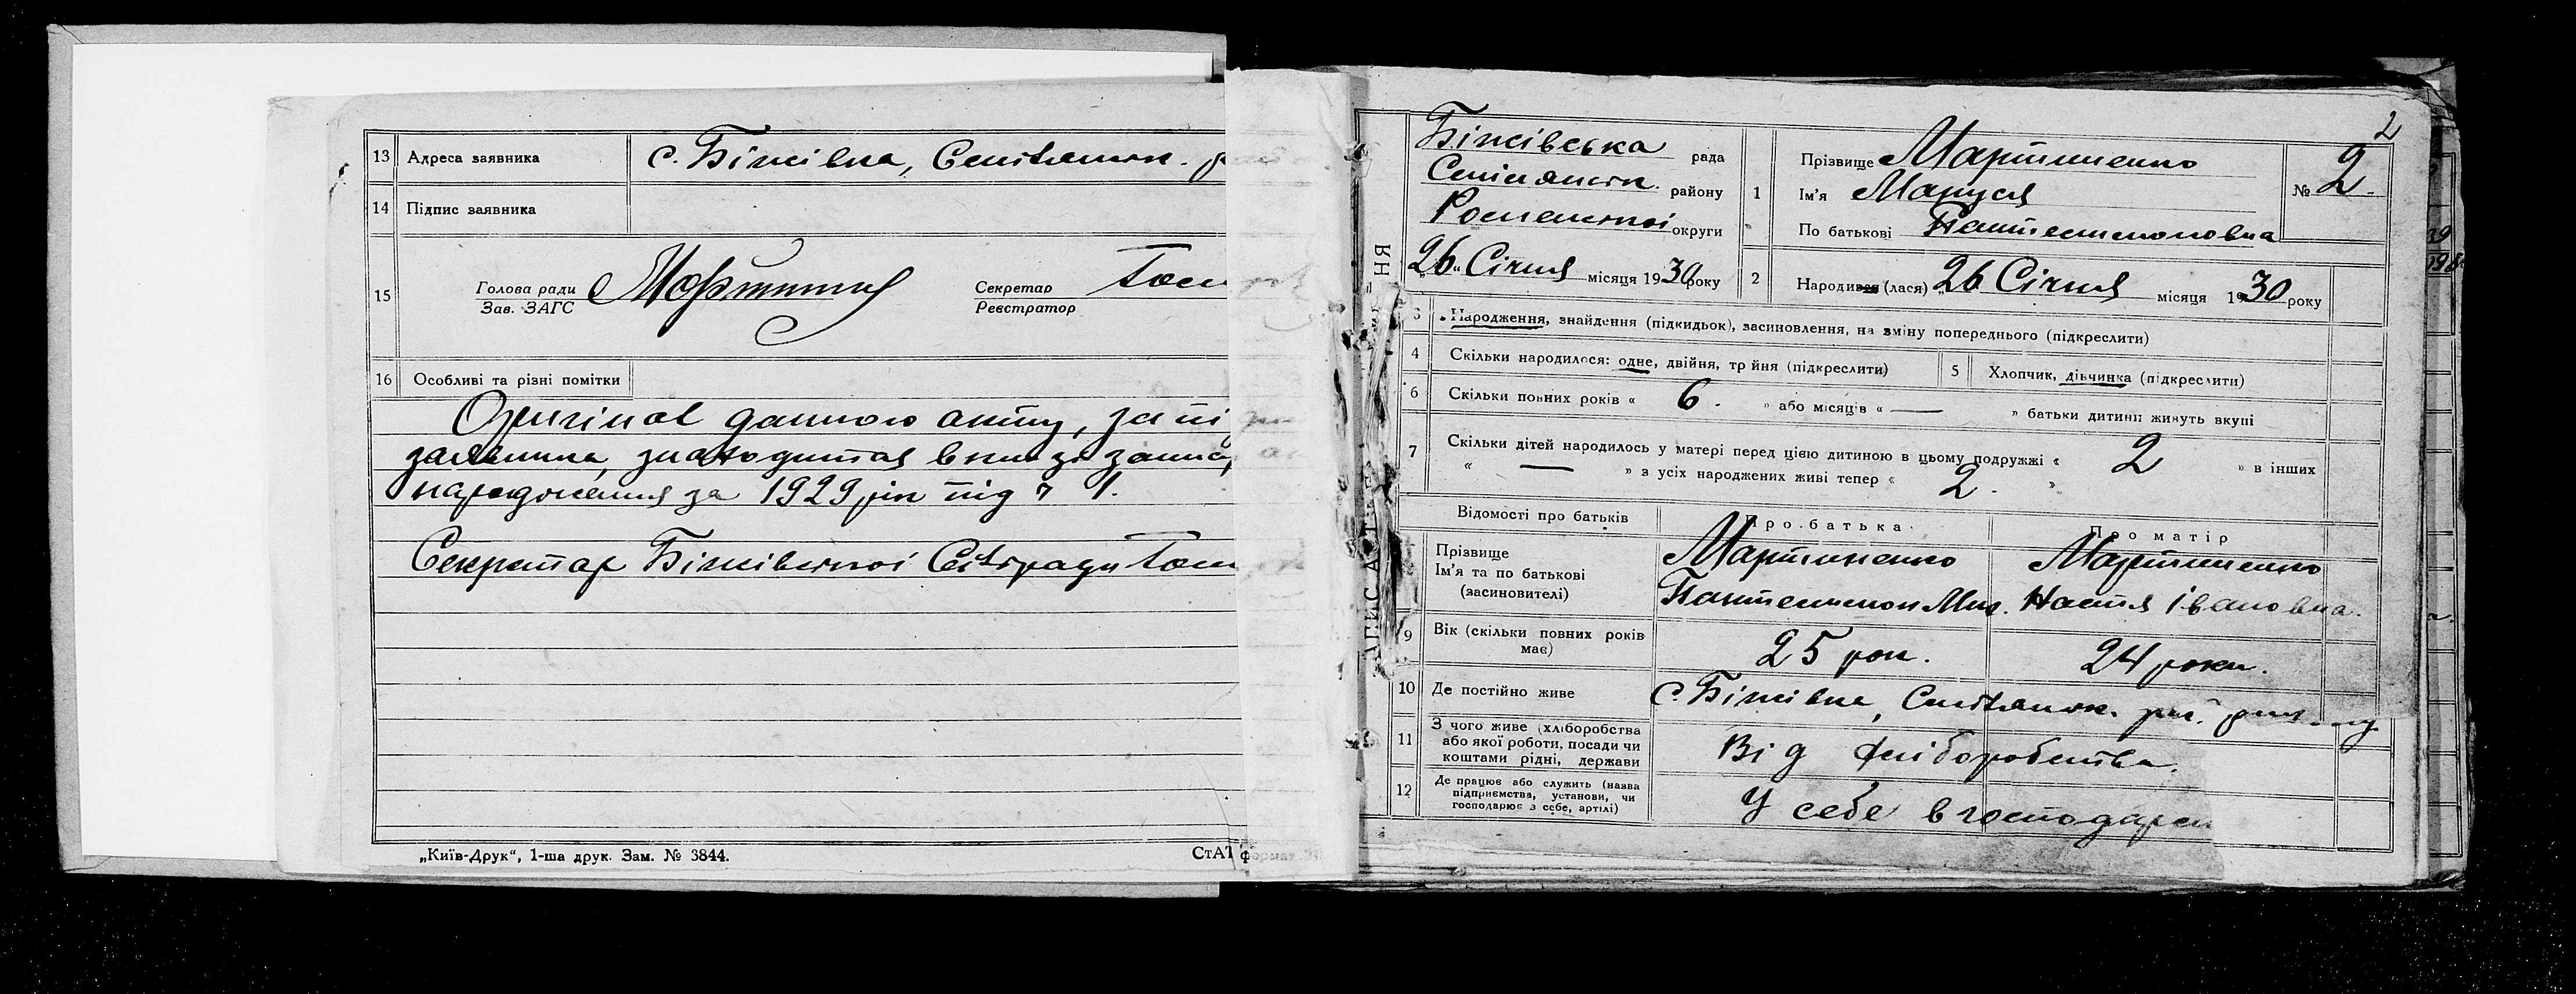 13 Адреса заявника с. Біжівка,
14 Підпис заявника
15 Голова ради
Зав. ЗАГС
Секретар
Реєстратор
16 Особливі та різні помітки
Оригінал данного акту, за пі
заявника, знаходится в книзі запис
народження за 1929 рік під № 1.
Секретар Біжівської Сільради
„Київ-Друк“, 1-ша друк. Зам. № 3844.
СтАТ формат
2
Біжівська рада
району
Роменської округи
„26“ Січня місяця 1930 року
1 Прізвище Мартиненко
Ім'я Маруся
По батькові Пантелимоновна
№ 2.
2 Народився (лася) „26 Січня місяця 1930 року
3 Народження, знайдення (підкидьок), засиновлення, на зміну попереднього (підкреслити)
4 Скільки народилося: одне, двійня, тр йня (підкреслити)
5 Хлопчик, дівчинка (підкреслити)
6 Скільки повних років « 6. » або місяців « — » батьки дитини живуть вкупі
7 Скільки дітей народилось у матері перед цією дитиною в цьому подружжі « 2 » в інших
« — » з усіх народжених живі тепер « 2. »
Відомості про батьків Про батька Про матір
Прізвище Мартиненко Мартиненко
Ім'я та по батькові
(засиновителі) Пантелимон Мих. Настя Івановна.
9 Вік (скільки повних років
має) 25 рок. 24 роки.
10 Де постійно живе с. Біжівка,
11 З чого живе (хліборобства
або якої роботи, посади чи
коштами рідні, держави Від хліборобства.
12 Де працює або служить (назва
підприємства, установи, чи
господарює з себе, артілі) У себе в господарс